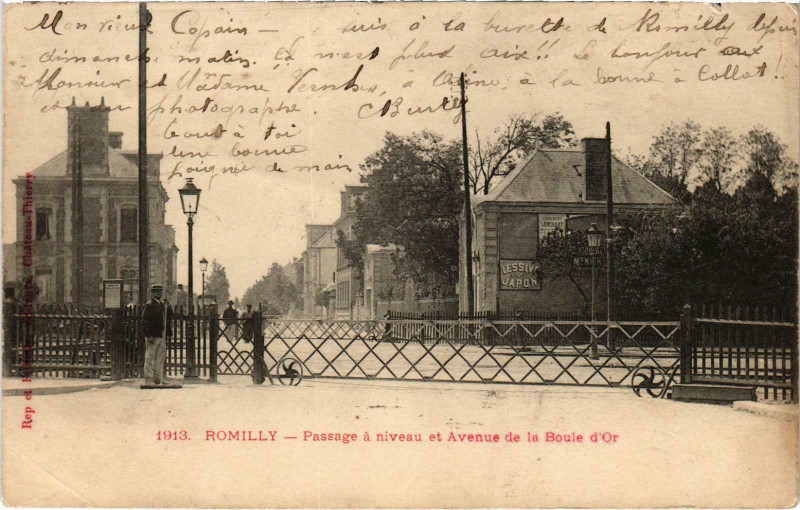 Mon vieux Copain — suis à la burette de Romilly depuis
dimanche matin. Ça n'est plus Aix!! Le bonjour aux
Monsieur et Madame à la bonne à Collat!!
photographe.
tout à toi
Une bonne
poignée de main
LESSIVE
JAPON
MENIER
Rep et Château-Thierry
1913. ROMILLY — Passage à niveau et Avenue de la Boule d'Or